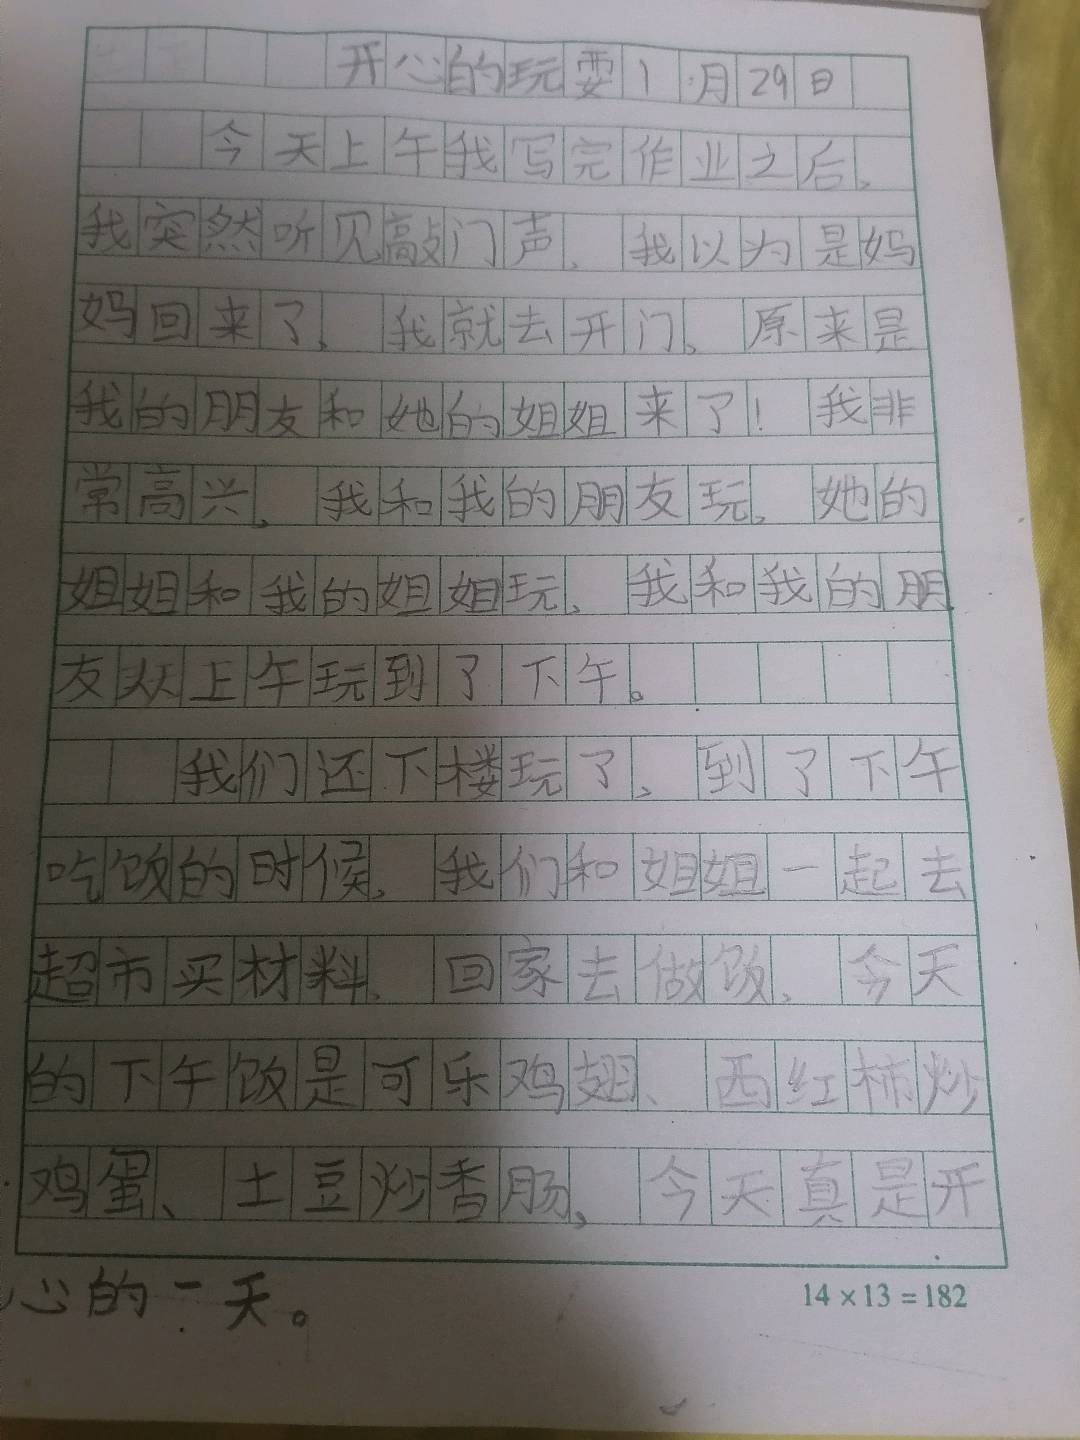 开心的玩耍1月29日
今天上午我写完作业之后，
我突然听见敲门声，我以为是妈
妈回来了，我就去开门，原来是
我的朋友和她的姐姐来了！我非
常高兴，我和我的朋友玩，她的
姐姐和我的姐姐玩，我和我的朋
友从上午玩到了下午。
我们还下楼玩了，到了下午
吃饭的时候，我们和姐姐一起去
超市买材料，回家去做饭，今天
的下午饭是可乐鸡翅、西红柿炒
鸡蛋、土豆炒香肠，今天真是开
心的一天。
14×13=182